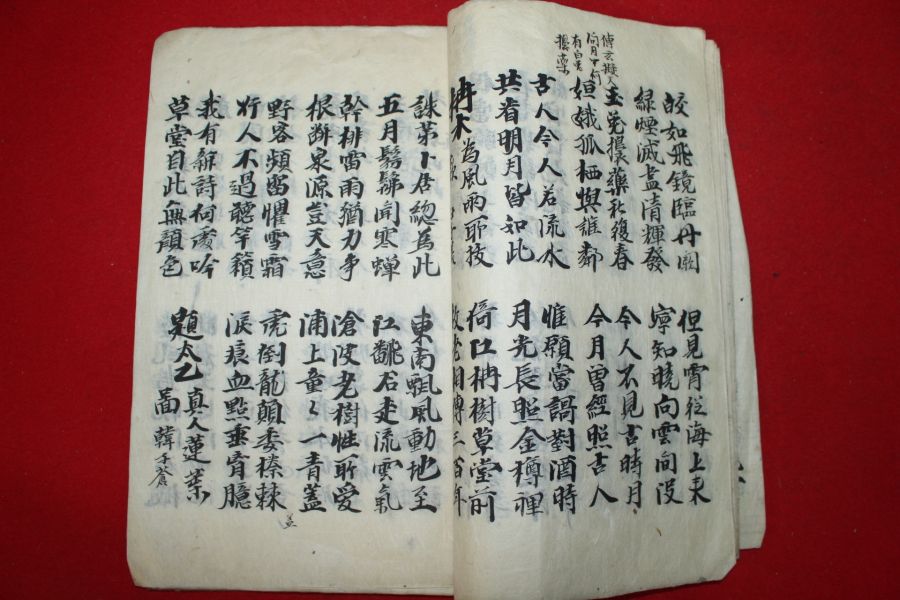 傅玄擬天
問月中何
有白兔
擣藥
皎如飛鏡臨丹闕
綠煙滅盡清輝發
但見宵從海上来
寧知曉向雲間沒
玉兔擣藥秋復春
姮娥孤栖與誰鄰
今人不見古時月
今月曾經照古人
古人今人若流水
共看明月皆如此
惟願當謌對酒時
月光長照金樽裡
枏木為風雨所拔
倚江枏樹草堂前
故老相傳二百年
誅茅卜居總為此
五月髣髴聞寒蟬
東南飄風動地至
江飜石走流雲氣
幹排雷雨猶力爭
根斷泉源豈天意
滄波老樹性所愛
浦上童〻一青蓋
野客頻留懼雪霜
行人不過聽竽籟
虎倒龍顛委榛棘
淚痕血點垂胷臆
盖
我有新詩何處吟
草堂自此無顏色
題太乙真人蓮葉
圖 韓子蒼